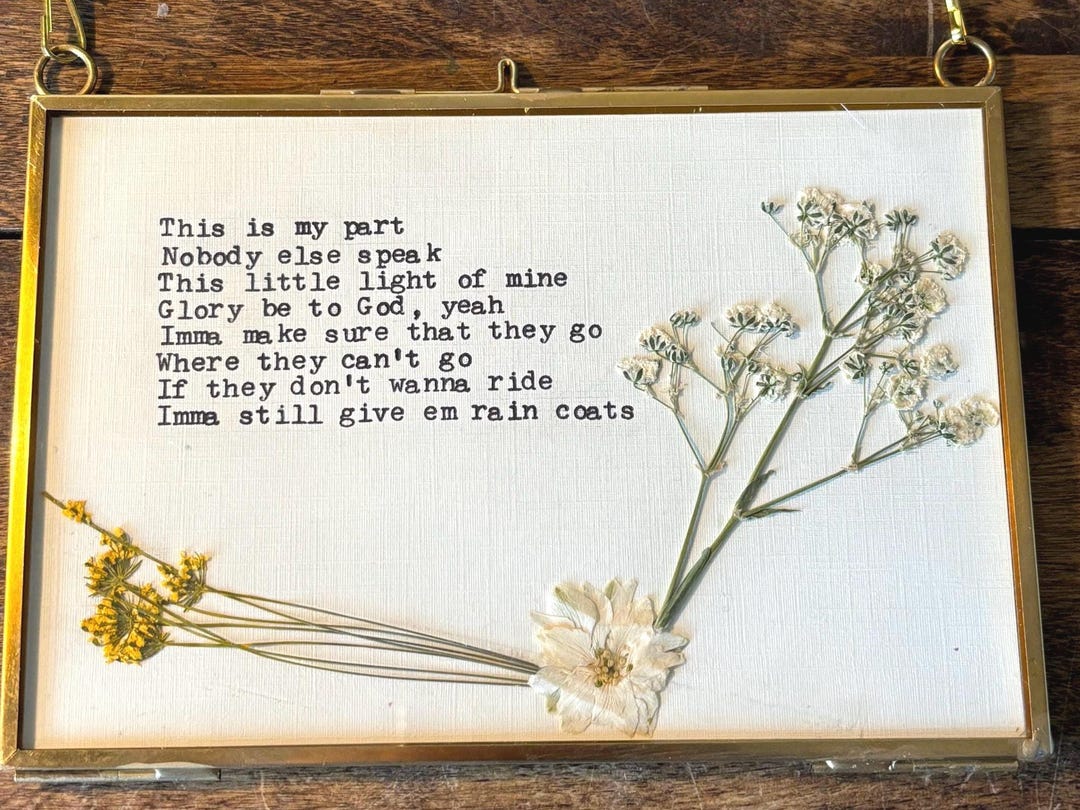 This is my part
Nobody else speak
This little light of mine
Glory be to God, yeah
Imma make sure that they go
Where they can't go
If they don't wanna ride
Imma still give em rain coats